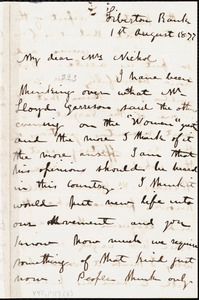 Liberton Bank
1st August 1877
My dear Mrs Nichol
I have been
thinking over what Mr
Lloyd Garrison said the oth
evening on the "Woman"
and the more I think of it
the more anxious I am that
his opinions should be heard
in this Country. I think it
would put new life into
our Movement and you
know how much we require
something of that kind just
now. People think only